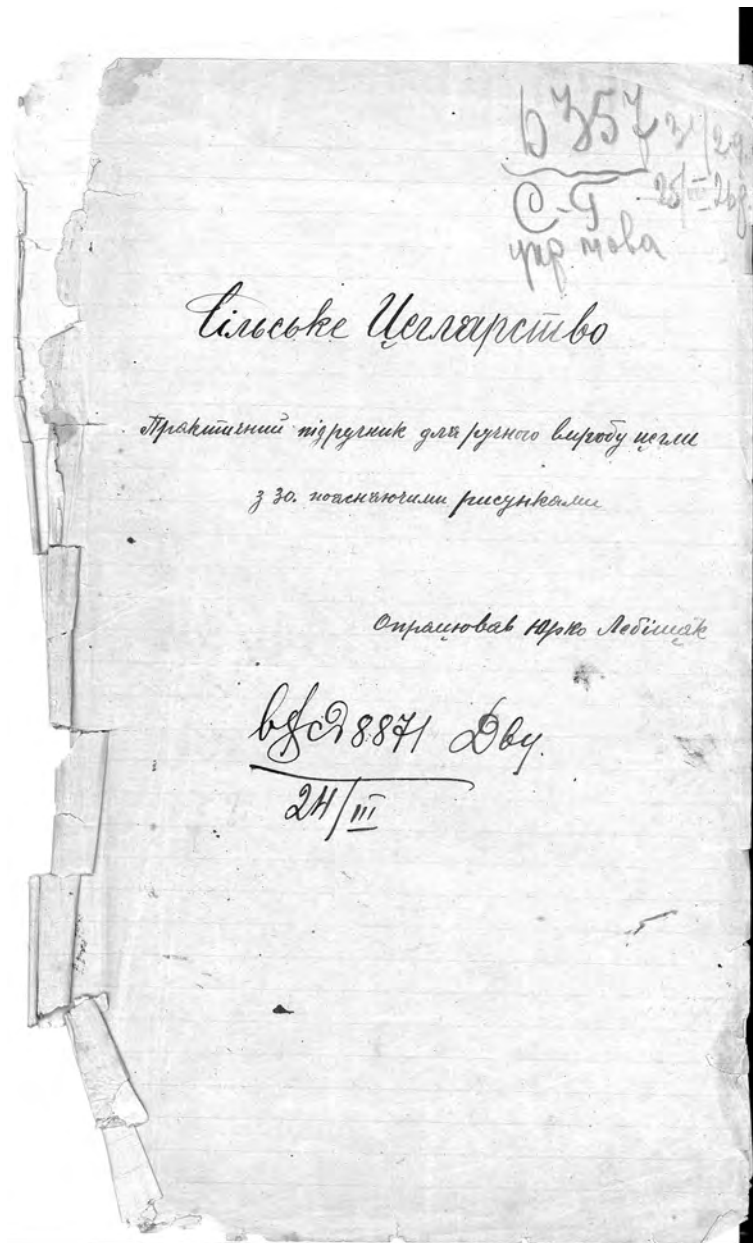 6357
С-Г
укр мова
Сільське Цеглярство
Практичний підручник для ручного виробу цегли
з 30. пояснюючими рисунками
Опрацював Юрко Лебіщак
8871 Дву.
24/III